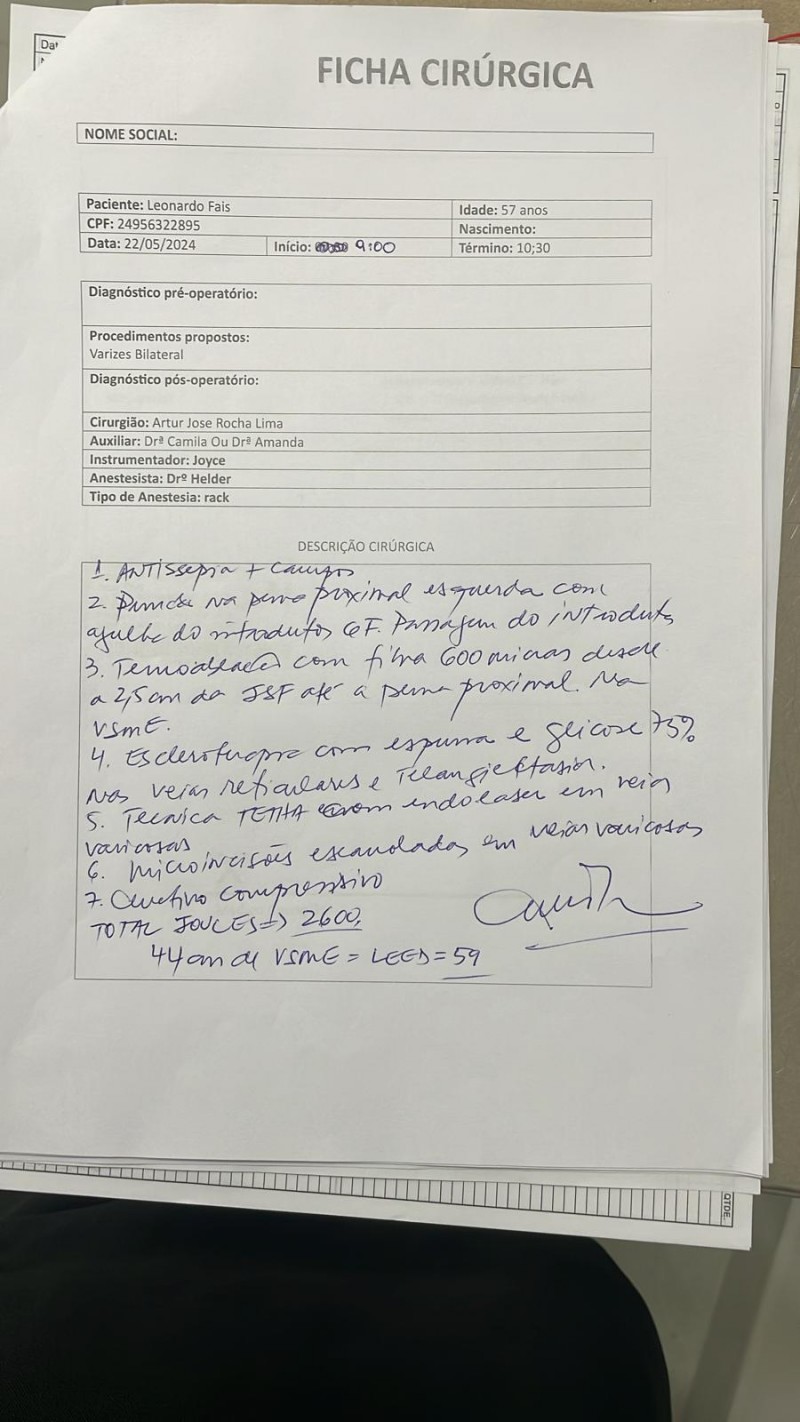 Dat
FICHA CIRÚRGICA
NOME SOCIAL:
Paciente: Leonardo Fais
Idade: 57 anos
CPF: 24956322895
Nascimento:
Data: 22/05/2024
Início: 9:00
Término: 10;30
Diagnóstico pré-operatório:
Procedimentos propostos:
Varizes Bilateral
Diagnóstico pós-operatório:
Cirurgião: Artur Jose Rocha Lima
Auxiliar: Drª Camila Ou Drª Amanda
Instrumentador: Joyce
Anestesista: Drº Helder
Tipo de Anestesia: rack
DESCRIÇÃO CIRÚRGICA
1. ANTIssepsia + Campos
2. Punção na perna proximal esquerda com
agulha do introdutor 6F. Passagem do introdutor
3. Termoablação com fibra 600 micras desde
a 2,5cm da JSF até a perna proximal. Na
VSME.
4. Escleroterapia com espuma e glicose 75%
nas veias reticulares e Telangiectasias.
5. Tecnica com endolaser em veias
varicosas
6. Microincisões escalonadas em veias varicosas
7. Curativo compressivo
TOTAL JOULES => 2600,
44 cm de VSME = LEED = 59
QTDE.